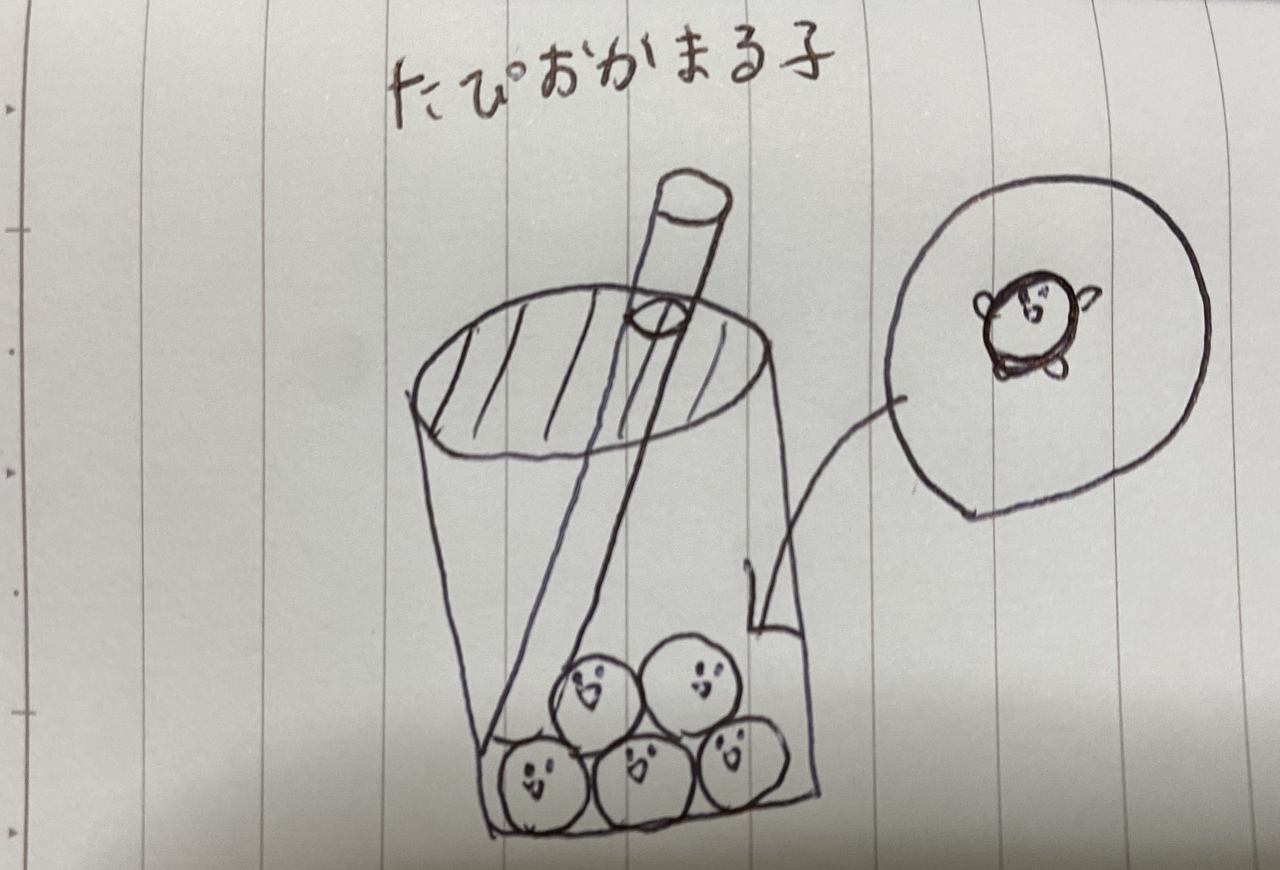 たぴおかまる子